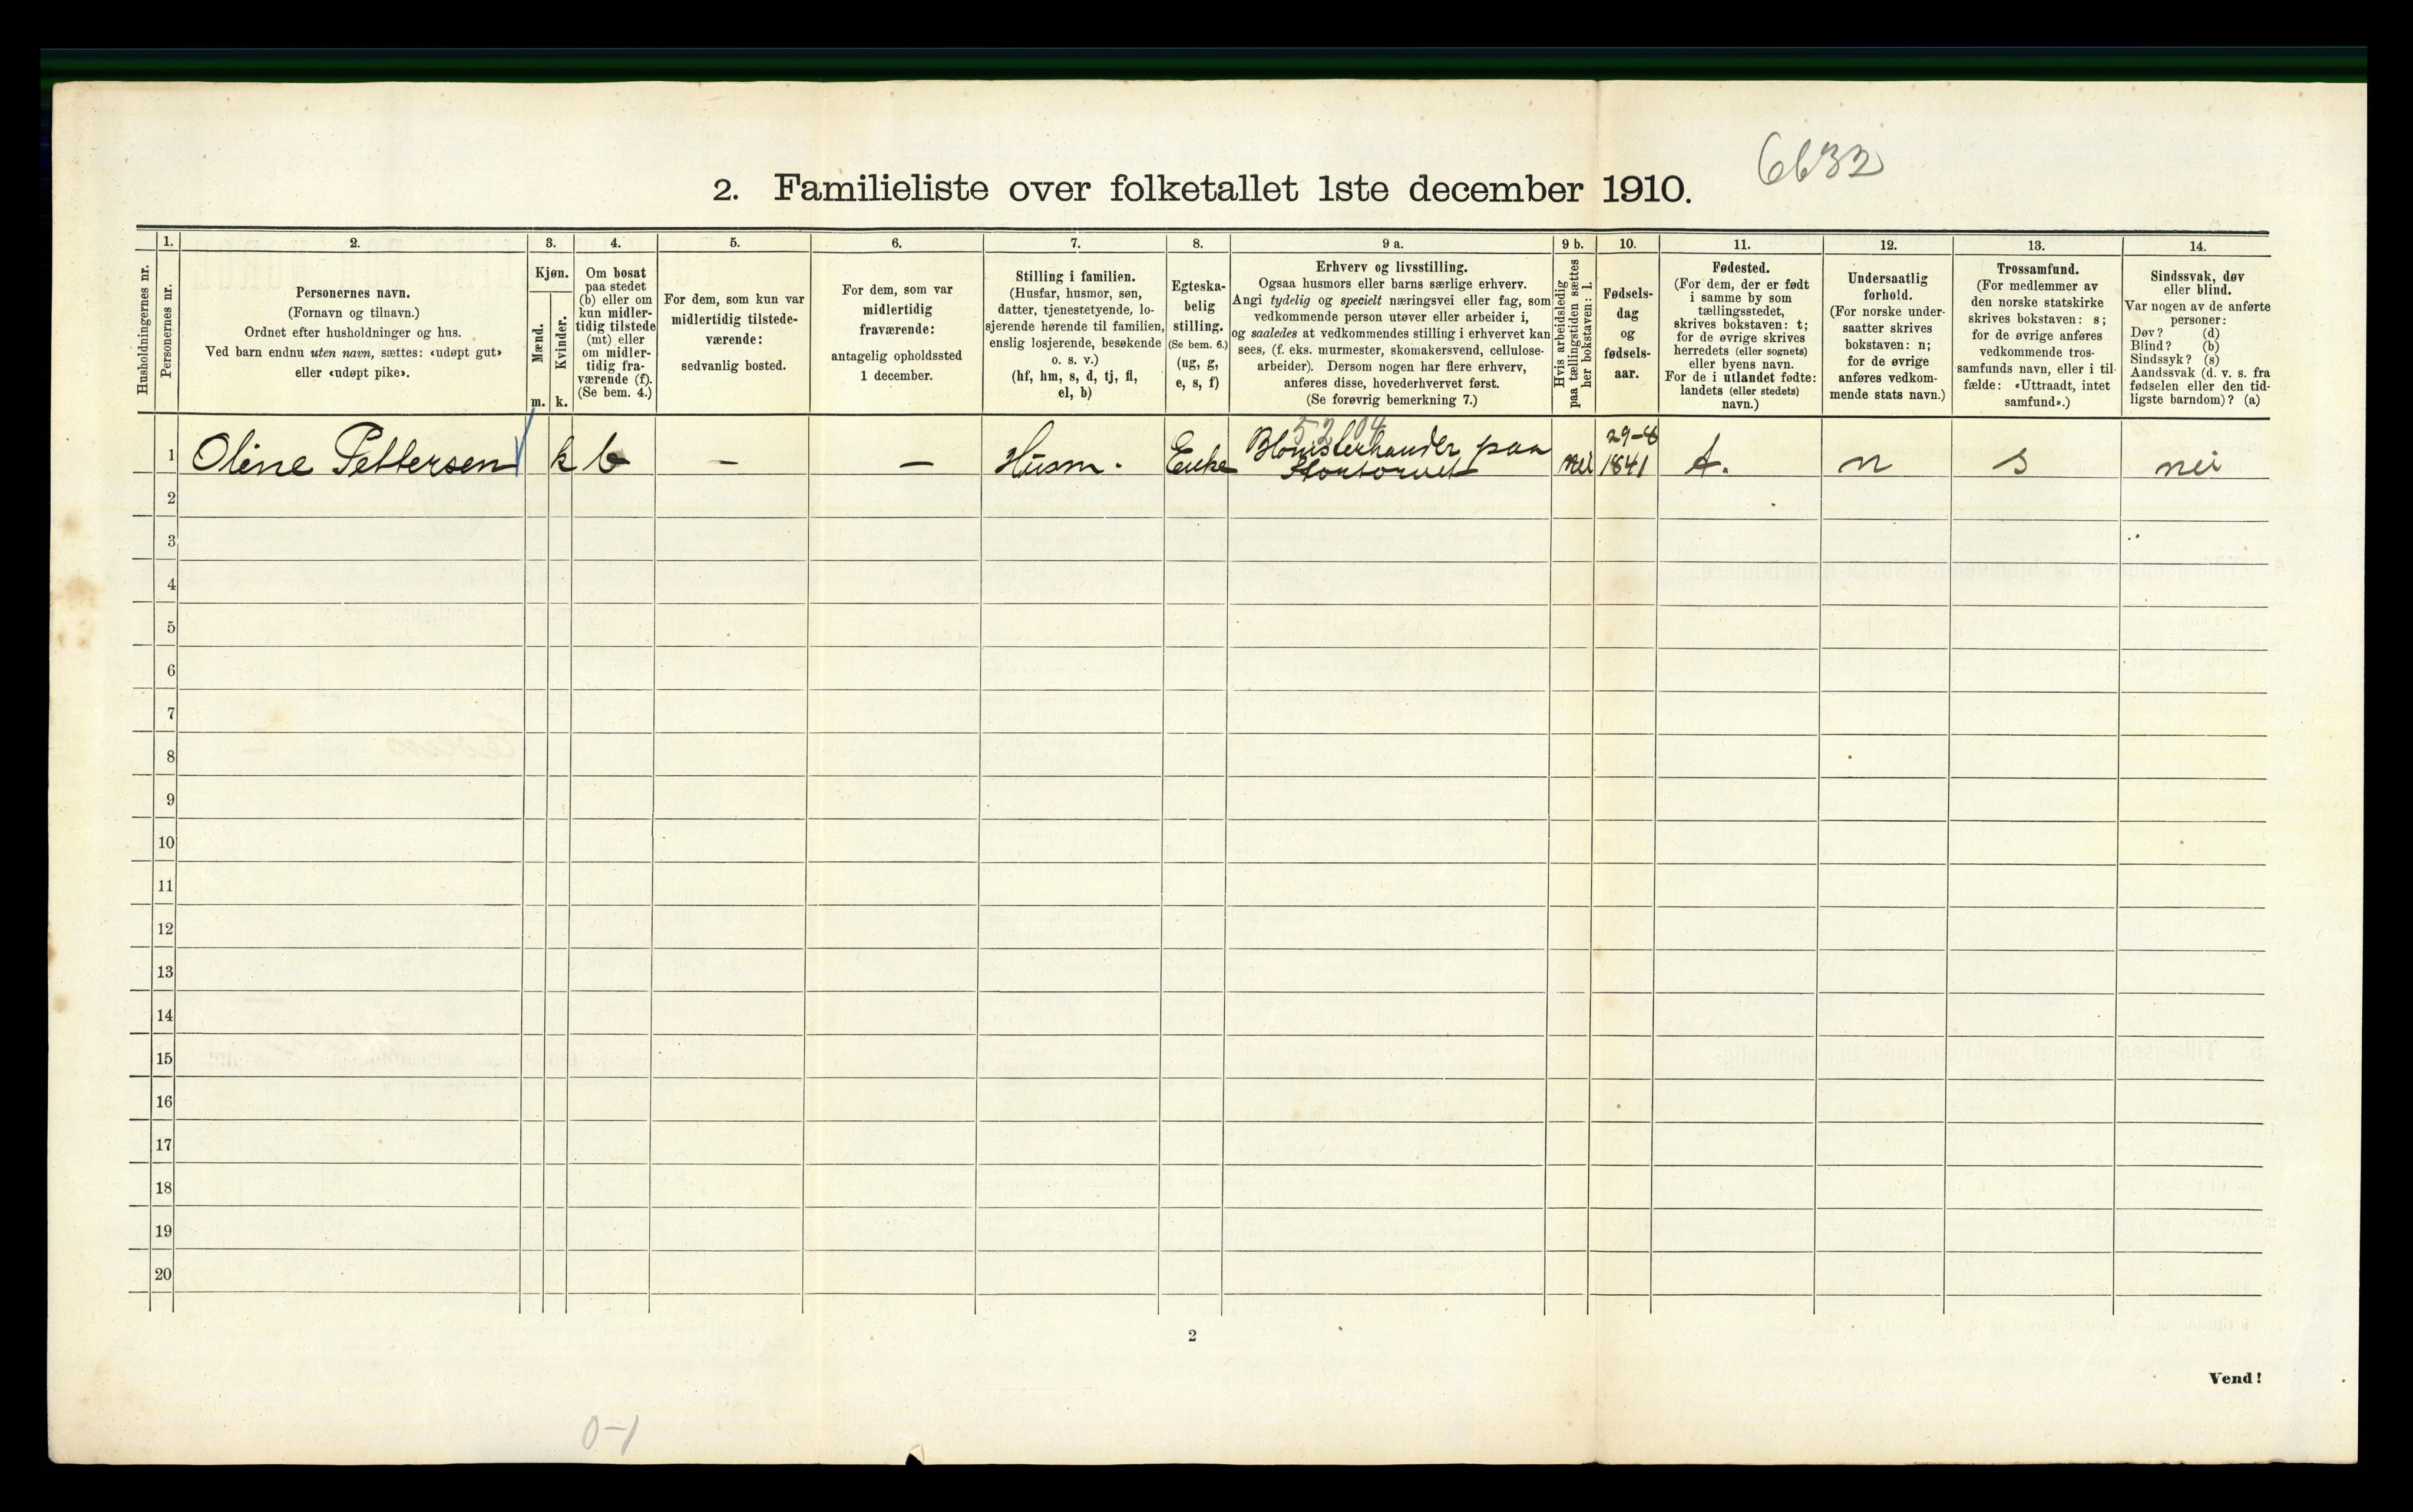 6632
2. Familieliste over folketallet 1ste december 1910.
1. 2. 3. 4. 5. 6. 7. 8. 9 a. 9 b. 10. 11. 12. 13. 14.
Husholdningernes nr.
Personernes nr.
Personernes navn.
(Fornavn og tilnavn.)
Ordnet efter husholdninger og hus.
Ved barn endnu uten navn, sættes: «udøpt gut»
eller «udøpt pike».
Kjøn.
Mænd.
Kvinder.
m. k.
Om bosat
paa stedet
(b) eller om
kun midler-
tidig tilstede
(mt) eller
om midler-
tidig fra-
værende (f).
(Se bem. 4.)
For dem, som kun var
midlertidig tilstede-
værende:
sedvanlig bosted.
For dem, som var
midlertidig
fraværende:
antagelig opholdssted
1 december.
Stilling i familien.
(Husfar, husmor, søn,
datter, tjenestetyende, lo-
sjerende hørende til familien,
enslig losjerende, besøkende
o. s. v.)
(hf, hm, s, d, tj, fl,
el, b)
Egteska-
belig
stilling.
(Se bem. 6.)
(ug, g,
e, s, f)
Erhverv og livsstilling.
Ogsaa husmors eller barns særlige erhverv.
Angi tydelig og specielt næringsvei eller fag, som
vedkommende person utøver eller arbeider i,
og saaledes at vedkommendes stilling i erhvervet kan
sees, (f. eks. murmester, skomakersvend, cellulose-
arbeider). Dersom nogen har flere erhverv,
anføres disse, hovederhvervet først.
(Se forøvrig bemerkning 7.)
Hvis arbeidsledig
paa tællingstiden sættes
her bokstaven: l.
Fødsels-
dag
og
fødsels-
aar.
Fødested.
(For dem, der er født
i samme by som
tællingsstedet,
skrives bokstaven: t;
for de øvrige skrives
herredets (eller sognets)
eller byens navn.
For de i utlandet fødte:
landets (eller stedets)
navn.)
Undersaatlig
forhold.
(For norske under-
saatter skrives
bokstaven: n;
for de øvrige
anføres vedkom-
mende stats navn.)
Trossamfund.
(For medlemmer av
den norske statskirke
skrives bokstaven: s;
for de øvrige anføres
vedkommende tros-
samfunds navn, eller i til-
fælde: «Uttraadt, intet
samfund».)
Sindssvak, døv
eller blind.
Var nogen av de anførte
personer:
Døv? (d)
Blind? (b)
Sindssyk? (s)
Aandssvak (d. v. s. fra
fødselen eller den tid-
ligste barndom)? (a)
52 04
1 Oline Pettersen k b – – Husm. Enke Blomsterhandler paa nei 29-8 t. n s nei
Stortorvet 1841
2
3
4
5
6
7
8
9
10
11
12
13
14
15
16
17
18
19
20
2
Vend!
0-1